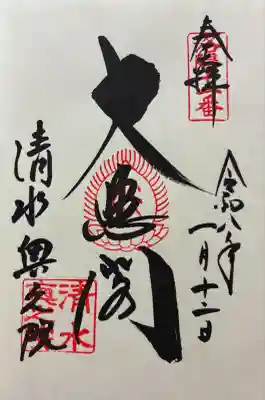 奉拝
令和八年
一月十二日
大悲閣
清水奥之院
清水